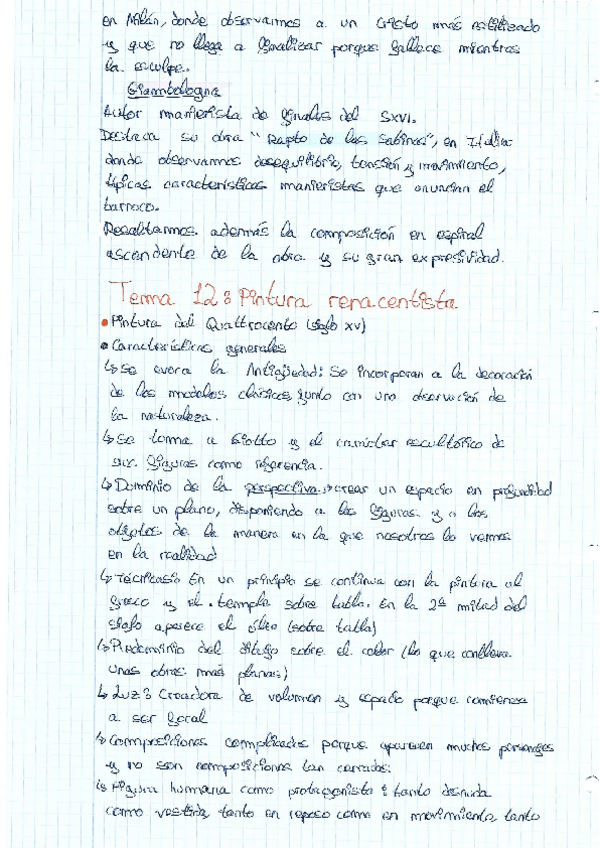 en Milán, donde observamos a un Cristo más estilizado
y que no llega a finalizar porque fallece mientras
la esculpe.
Giambologna
Autor manierista de finales del SXVI.
Destaca su obra "Rapto de las Sabinas", en Italia
donde observamos desequilibrio, tensión y movimiento,
típicas características manieristas que anuncian el
barroco.
Resaltamos además la composición en espiral
ascendente de la obra y su gran expresividad.
Tema 12: Pintura renacentista
• Pintura del Quattrocento (siglo XV)
• Características generales
↳ Se evoca la Antigüedad: Se incorporan a la decoración
de los modelos clásicos, junto con una observación de
la naturaleza.
↳ Se toma a Giotto y el carácter escultórico de
sus figuras como referencia.
↳ Dominio de la perspectiva: crear un espacio en profundidad
sobre un plano, disponiendo a las figuras y a los
objetos de la manera en la que nosotros lo vemos
en la realidad
↳ Técnicas: En un principio se continua con la pintura al
fresco y el temple sobre tabla. En la 2ª mitad del
siglo aparece el óleo (sobre tabla)
↳ Predominio del dibujo sobre el color (lo que conlleva
unas obras más planas)
↳ Luz: Creadora de volumen y espacio porque comienza
a ser focal
↳ Composiciones complicadas porque aparecen muchos personajes
y no son composiciones tan cerradas.
↳ Figura humana como protagonista: tanto desnuda
como vestida, tanto en reposo como en movimiento, tanto